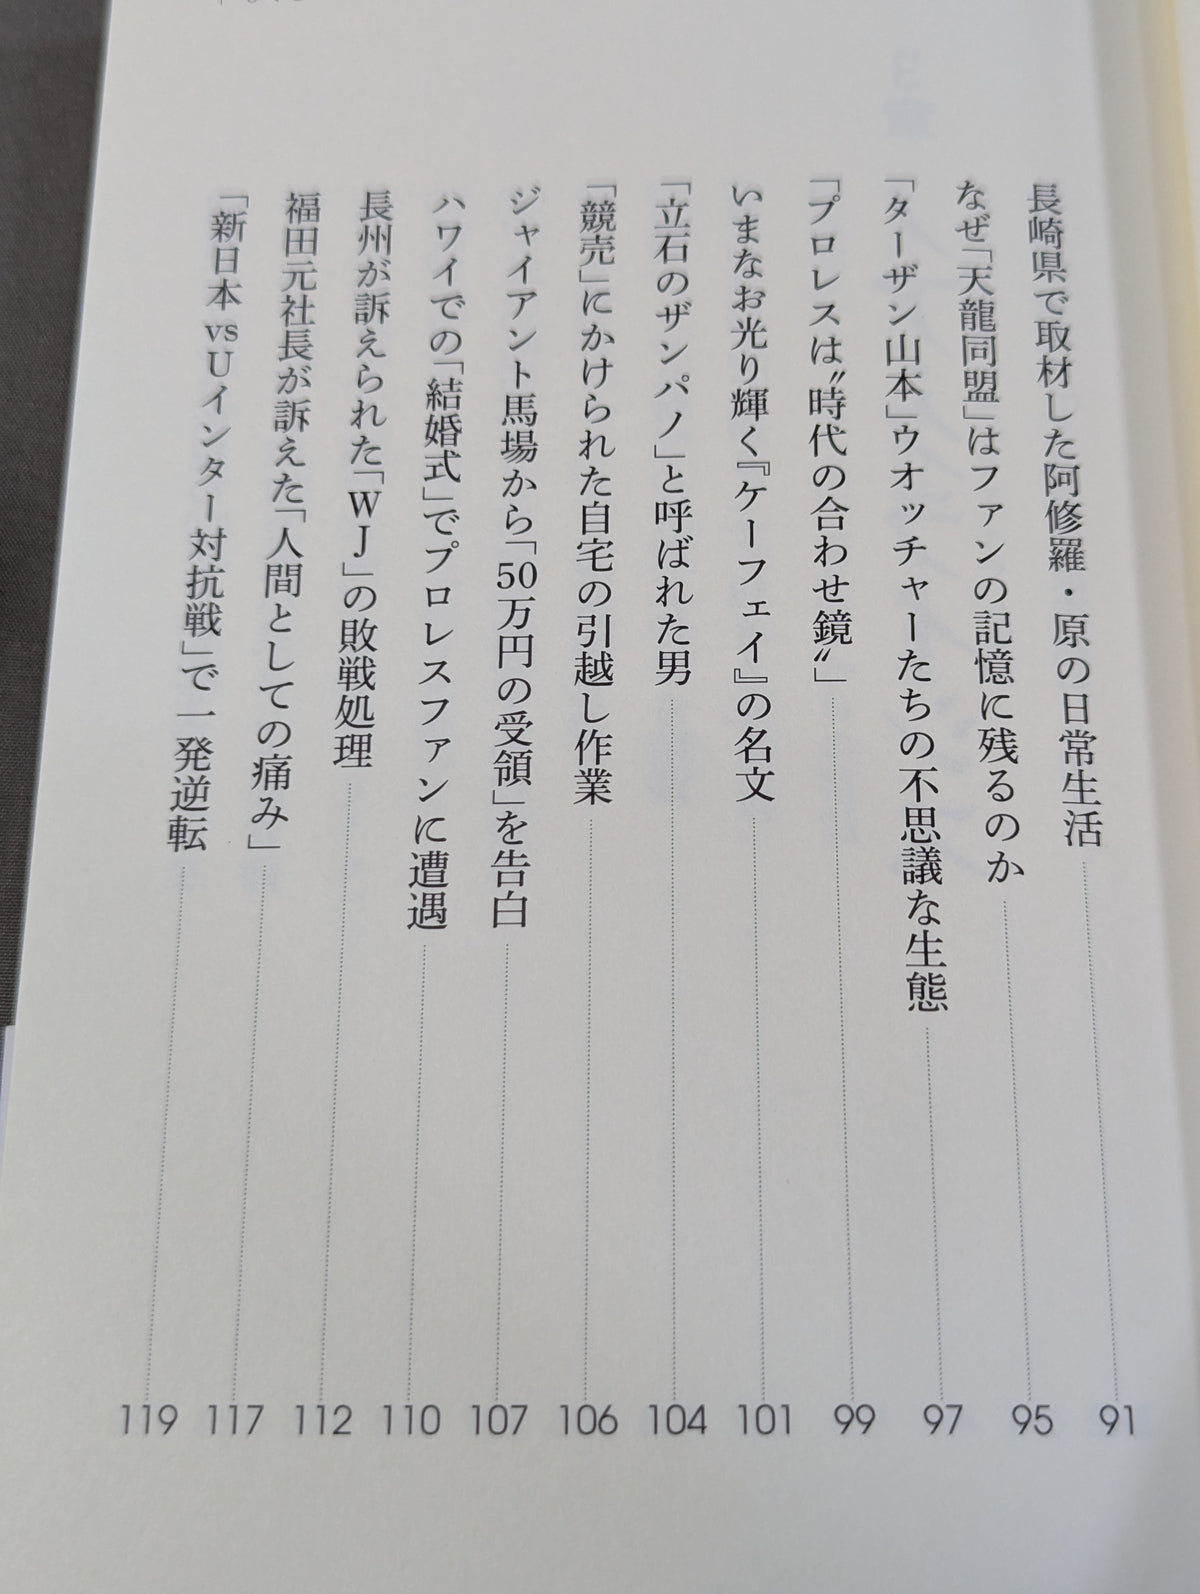 長崎県で取材した阿修羅・原の日常生活 91
なぜ「天龍同盟」はファンの記憶に残るのか 95
「ターザン山本」ウオッチャーたちの不思議な生態 97
「プロレスは〝時代の合わせ鏡〟」 99
いまなお光り輝く『ケーフェイ』の名文 101
「立石のザンパノ」と呼ばれた男 104
「競売」にかけられた自宅の引越し作業 106
ジャイアント馬場から「50万円の受領」を告白 107
ハワイでの「結婚式」でプロレスファンに遭遇 110
長州が訴えられた「WJ」の敗戦処理 112
福田元社長が訴えた「人間としての痛み」 117
「新日本vsUインター対抗戦」で一発逆転 119